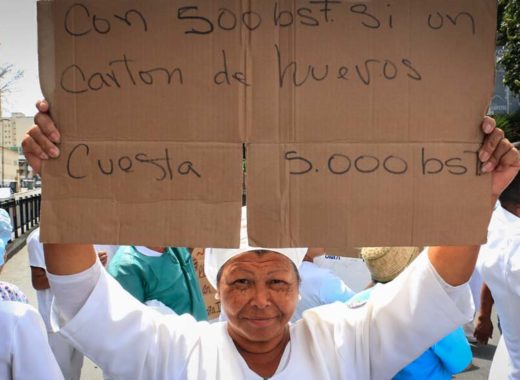 Con 500 bsf. si un
Carton de huevos
Cuesta 5.000 bsf.